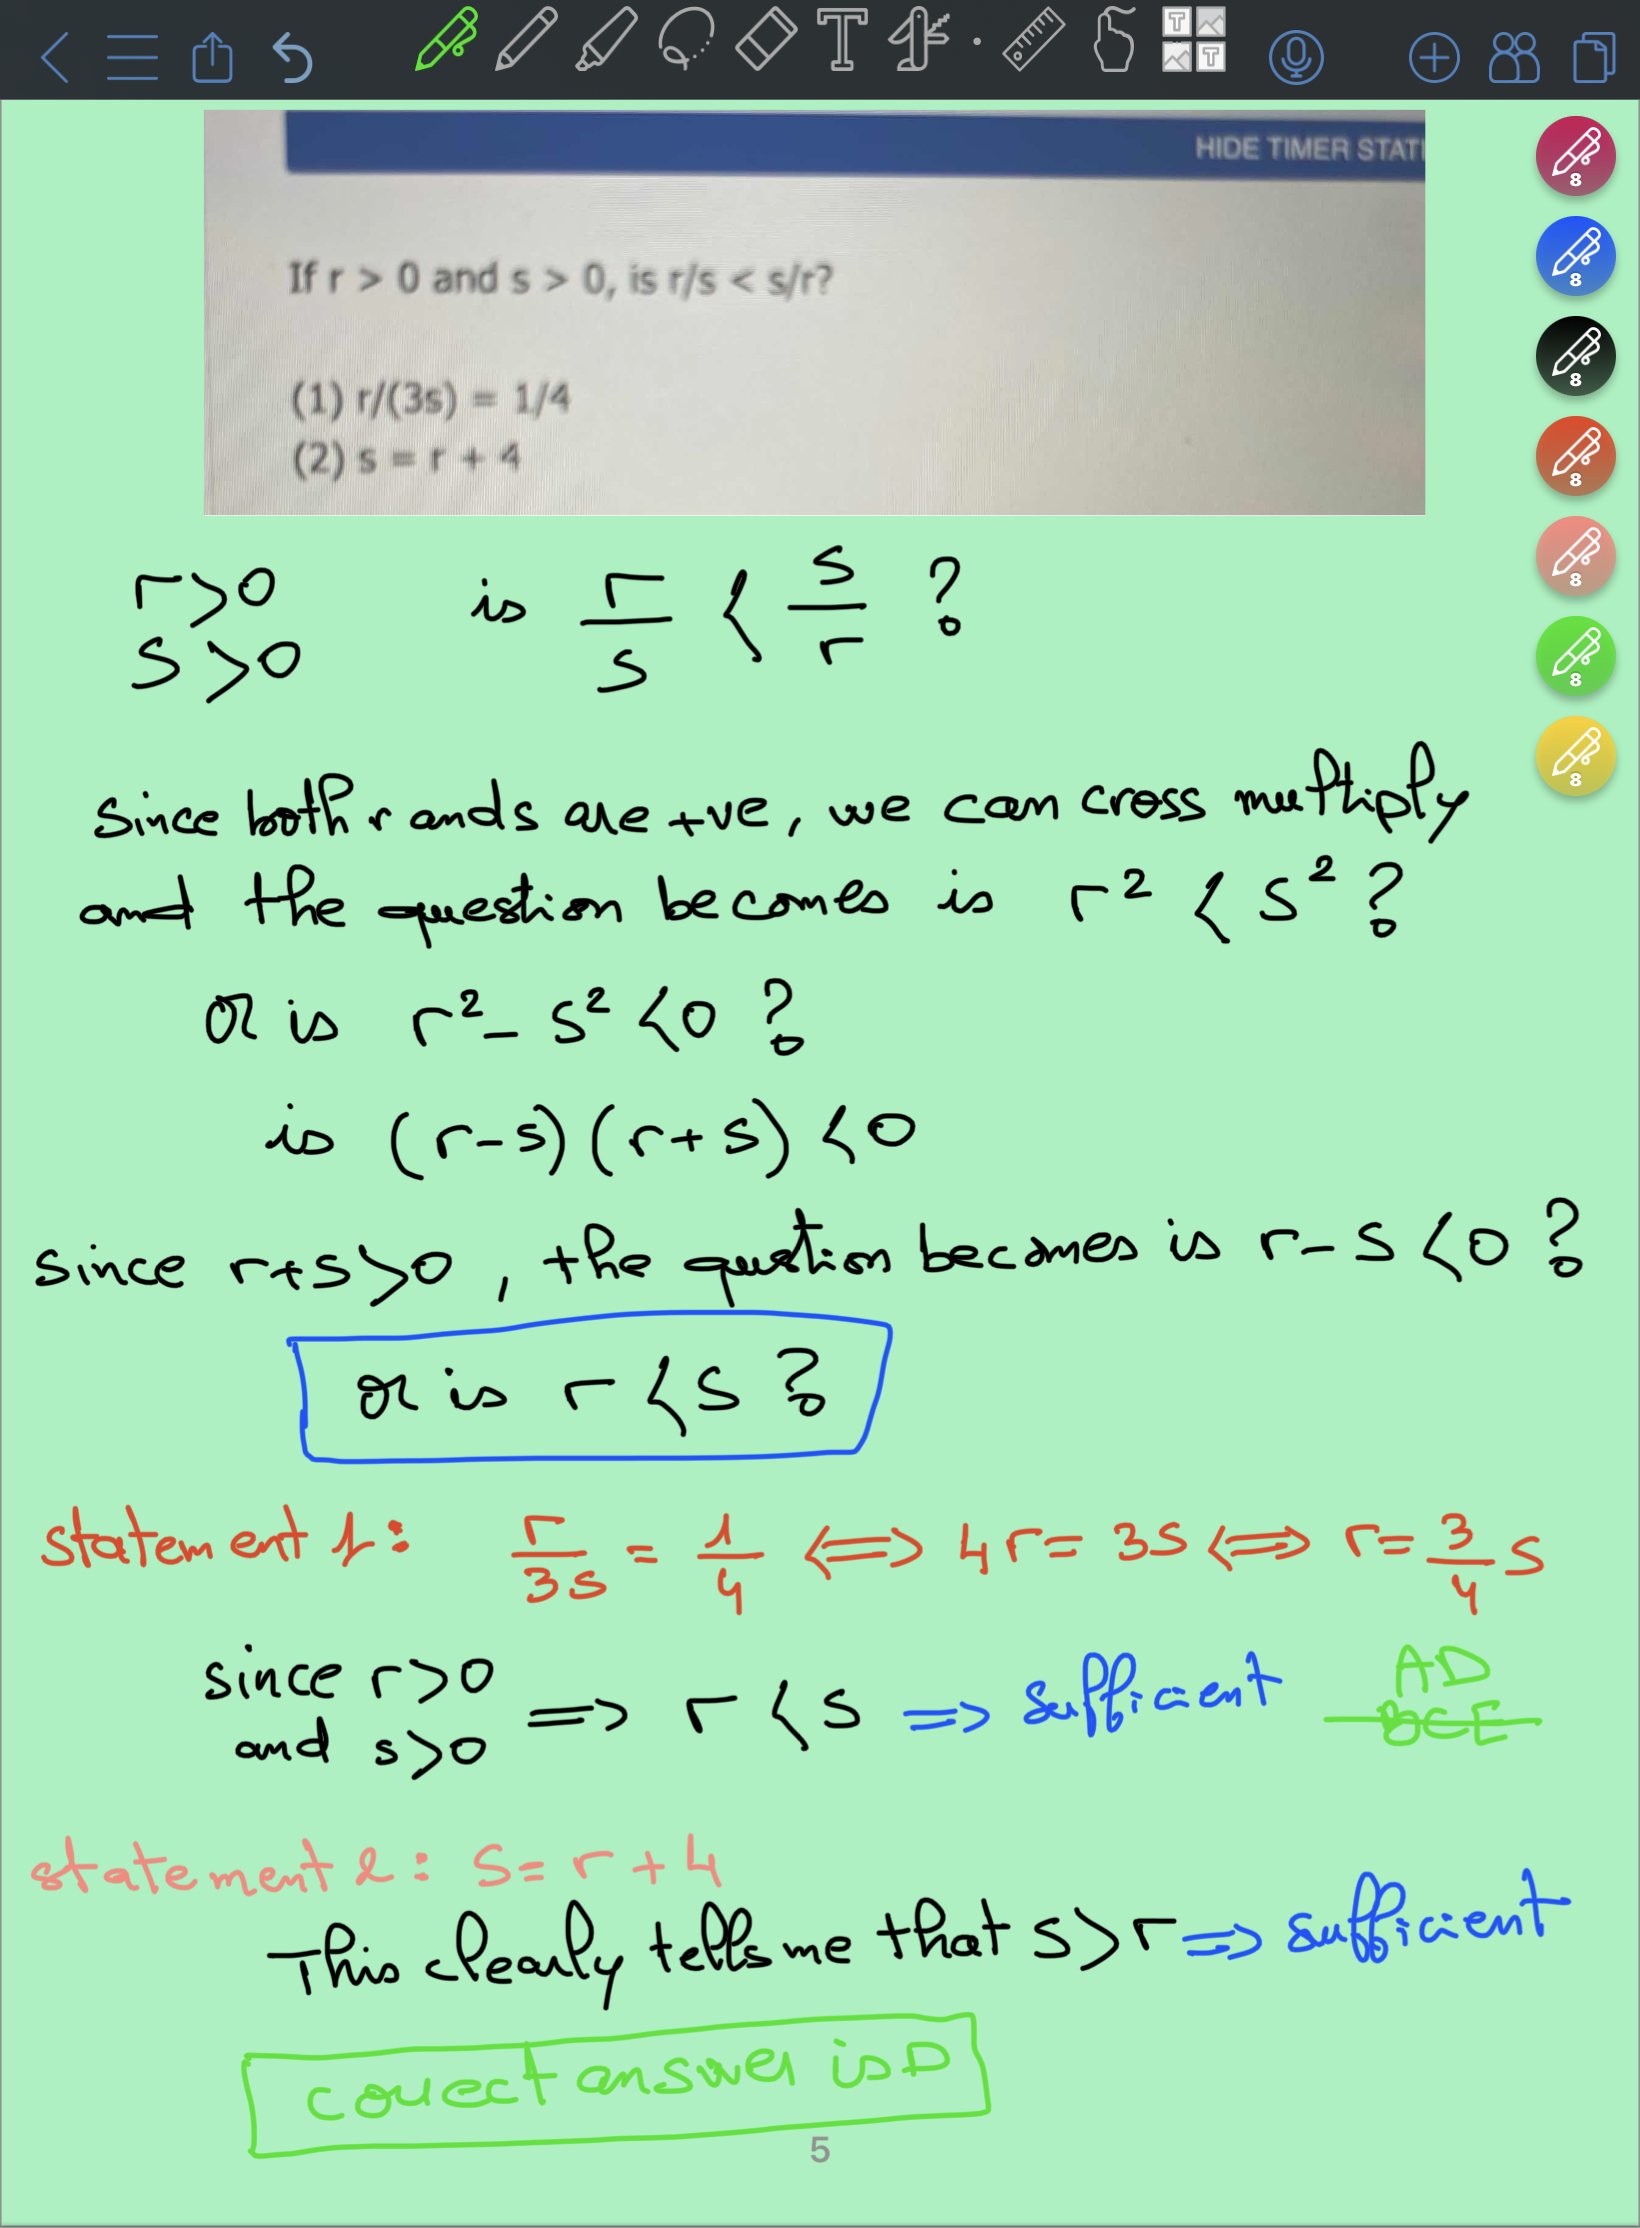 HIDE TIMER STATI
If r > 0 and s > 0, is r/s < s/r?
(1) r/(3s) = 1/4
(2) s = r + 4
r>0
s>0
is r/s < s/r ?
since both r and s are +ve, we can cross multiply
and the question becomes is r² < s² ?
or is r² - s² < 0 ?
is (r-s)(r+s) < 0
since r+s>0, the question becomes is r-s < 0 ?
or is r < s ?
statement 1: r/3s = 1/4 ⟺ 4r = 3s ⟺ r = 3/4 s
since r>0
and s>0
⟹ r < s ⟹ sufficient
AD
BCE
statement 2: s = r + 4
This clearly tells me that s > r ⟹ sufficient
correct answer is D
5